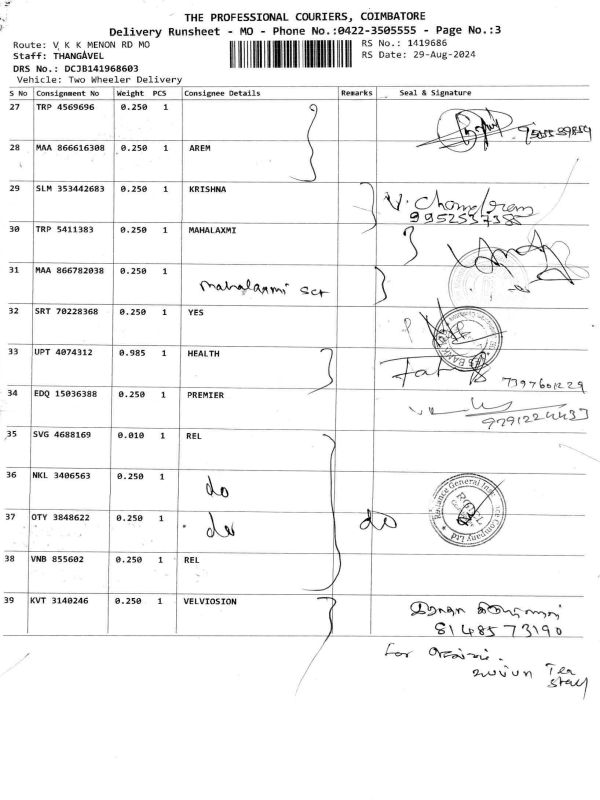 THE PROFESSIONAL COURIERS, COIMBATORE
Delivery Runsheet - MO - Phone No.:0422-3505555 - Page No.:3
Route: V K K MENON RD MO
RS No.: 1419686
Staff: THANGAVEL
RS Date: 29-Aug-2024
DRS No.: DCJB141968603
Vehicle: Two Wheeler Delivery
S No Consignment No Weight PCS Consignee Details Remarks Seal & Signature
27 TRP 4569696 0.250 1
28 MAA 866616308 0.250 1 AREM
29 SLM 353442683 0.250 1 KRISHNA
9952537385
30 TRP 5411383 0.250 1 MAHALAXMI
31 MAA 866782038 0.250 1
mahalaxmi
32 SRT 70228368 0.250 1 YES
33 UPT 4074312 0.985 1 HEALTH
7397601229
34 EDQ 15036388 0.250 1 PREMIER
9791224433
35 SVG 4688169 0.010 1 REL
36 NKL 3406563 0.250 1 do
Reliance General Insurance Company Ltd
37 OTY 3848622 0.250 1 do do
38 VNB 855602 0.250 1 REL
39 KVT 3140246 0.250 1 VELVIOSION
8148573190
For